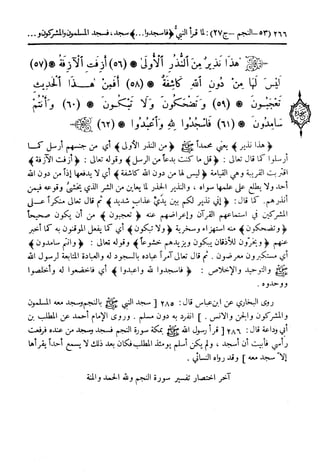 ٢٦٦ (٥٣-النجم -ج٢٧): لما قرأ النبيُّ ﴿فاسجدوا...﴾ سجد، فسجد المسلمون والمشركون و...
﴿ هَٰذَا نَذِيرٌ مِنَ النُّذُرِ الْأُولَىٰ ﴾ (٥٦) أَزِفَتِ الْآزِفَةُ ﴾ (٥٧)
لَيْسَ لَهَا مِن دُونِ اللَّهِ كَاشِفَةٌ ﴾ (٥٨) أَفَمِنْ هَٰذَا الْحَدِيثِ
تَعْجَبُونَ ﴾ (٥٩) وَتَضْحَكُونَ وَلَا تَبْكُونَ ﴾ (٦٠) وَأَنتُمْ
سَامِدُونَ ﴾ (٦١) فَاسْجُدُوا لِلَّهِ وَاعْبُدُوا ﴾ (٦٢)
﴿ هذا نذير ﴾ يعني محمداً ﷺ ﴿ من النذر الأولى ﴾ أي من جنسهم أرسل كما
أرسلوا كما قال تعالى : ﴿ قل ما كنت بدعاً من الرسل ﴾ وقوله تعالى : ﴿ أزفت الآزفة ﴾
اقتربت القريبة وهي القيامة ﴿ ليس لها من دون الله كاشفة ﴾ أي لا يدفعها إذاً من دون الله
أحد ولا يطلع على علمها سواه ، والنذير الحذر لما يعاين من الشر الذي يخشى وقوعه فيمن
أنذرهم. كما قال : ﴿ إني نذير لكم بين يدي عذاب شديد ﴾ ثم قال تعالى منكراً على
المشركين في استماعهم القرآن وإعراضهم عنه ﴿ تعجبون ﴾ من أن يكون صحيحاً
﴿ وتضحكون ﴾ منه استهزاء وسخرية ﴿ ولا تبكون ﴾ أي كما يفعل الموقنون به كما أخبر
عنهم ﴿ ويخرّون للأذقان يبكون ويزيدهم خشوعاً ﴾ وقوله تعالى : ﴿ وانتم سامدون ﴾
أي مستكبرون معرضون . ثم قال تعالى آمراً عباده بالسجود له والعبادة المتابعة لرسول الله
ﷺ والتوحيد والإخلاص : ﴿ فاسجدوا لله واعبدوا ﴾ أي فاخضعوا له وأخلصوا
ووحدوه .
روى البخاري عن ابن عباس قال : ٢٨٥ [ سجد النبي ﷺ بالنجم وسجد معه المسلمون
والمشركون والجن والانس . ] انفرد به دون مسلم . وروى الإمام أحمد عن المطلب بن
أبي وداعة قال : ٢٨٦ [ قرأ رسول الله ﷺ بمكة سورة النجم فسجد وسجد من عنده فرفعت
رأسي فأبيت أن أسجد ، ولم يكن أسلم يومئذ المطلب فكان بعد ذلك لا يسمع أحداً يقرأها
إلا سجد معه ] وقد رواه النسائي .
آخر اختصار تفسير سورة النجم ولله الحمد والمنة